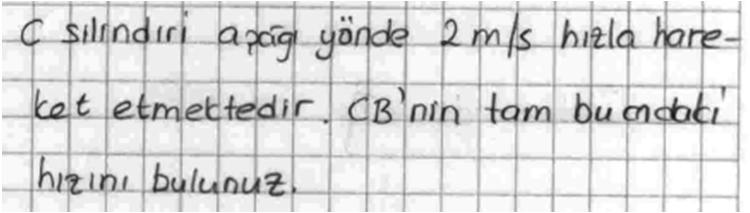 C silindiri aşağı yönde 2 m/s hızla hare-
ket etmektedir. CB'nin tam bu andaki
hızını bulunuz.